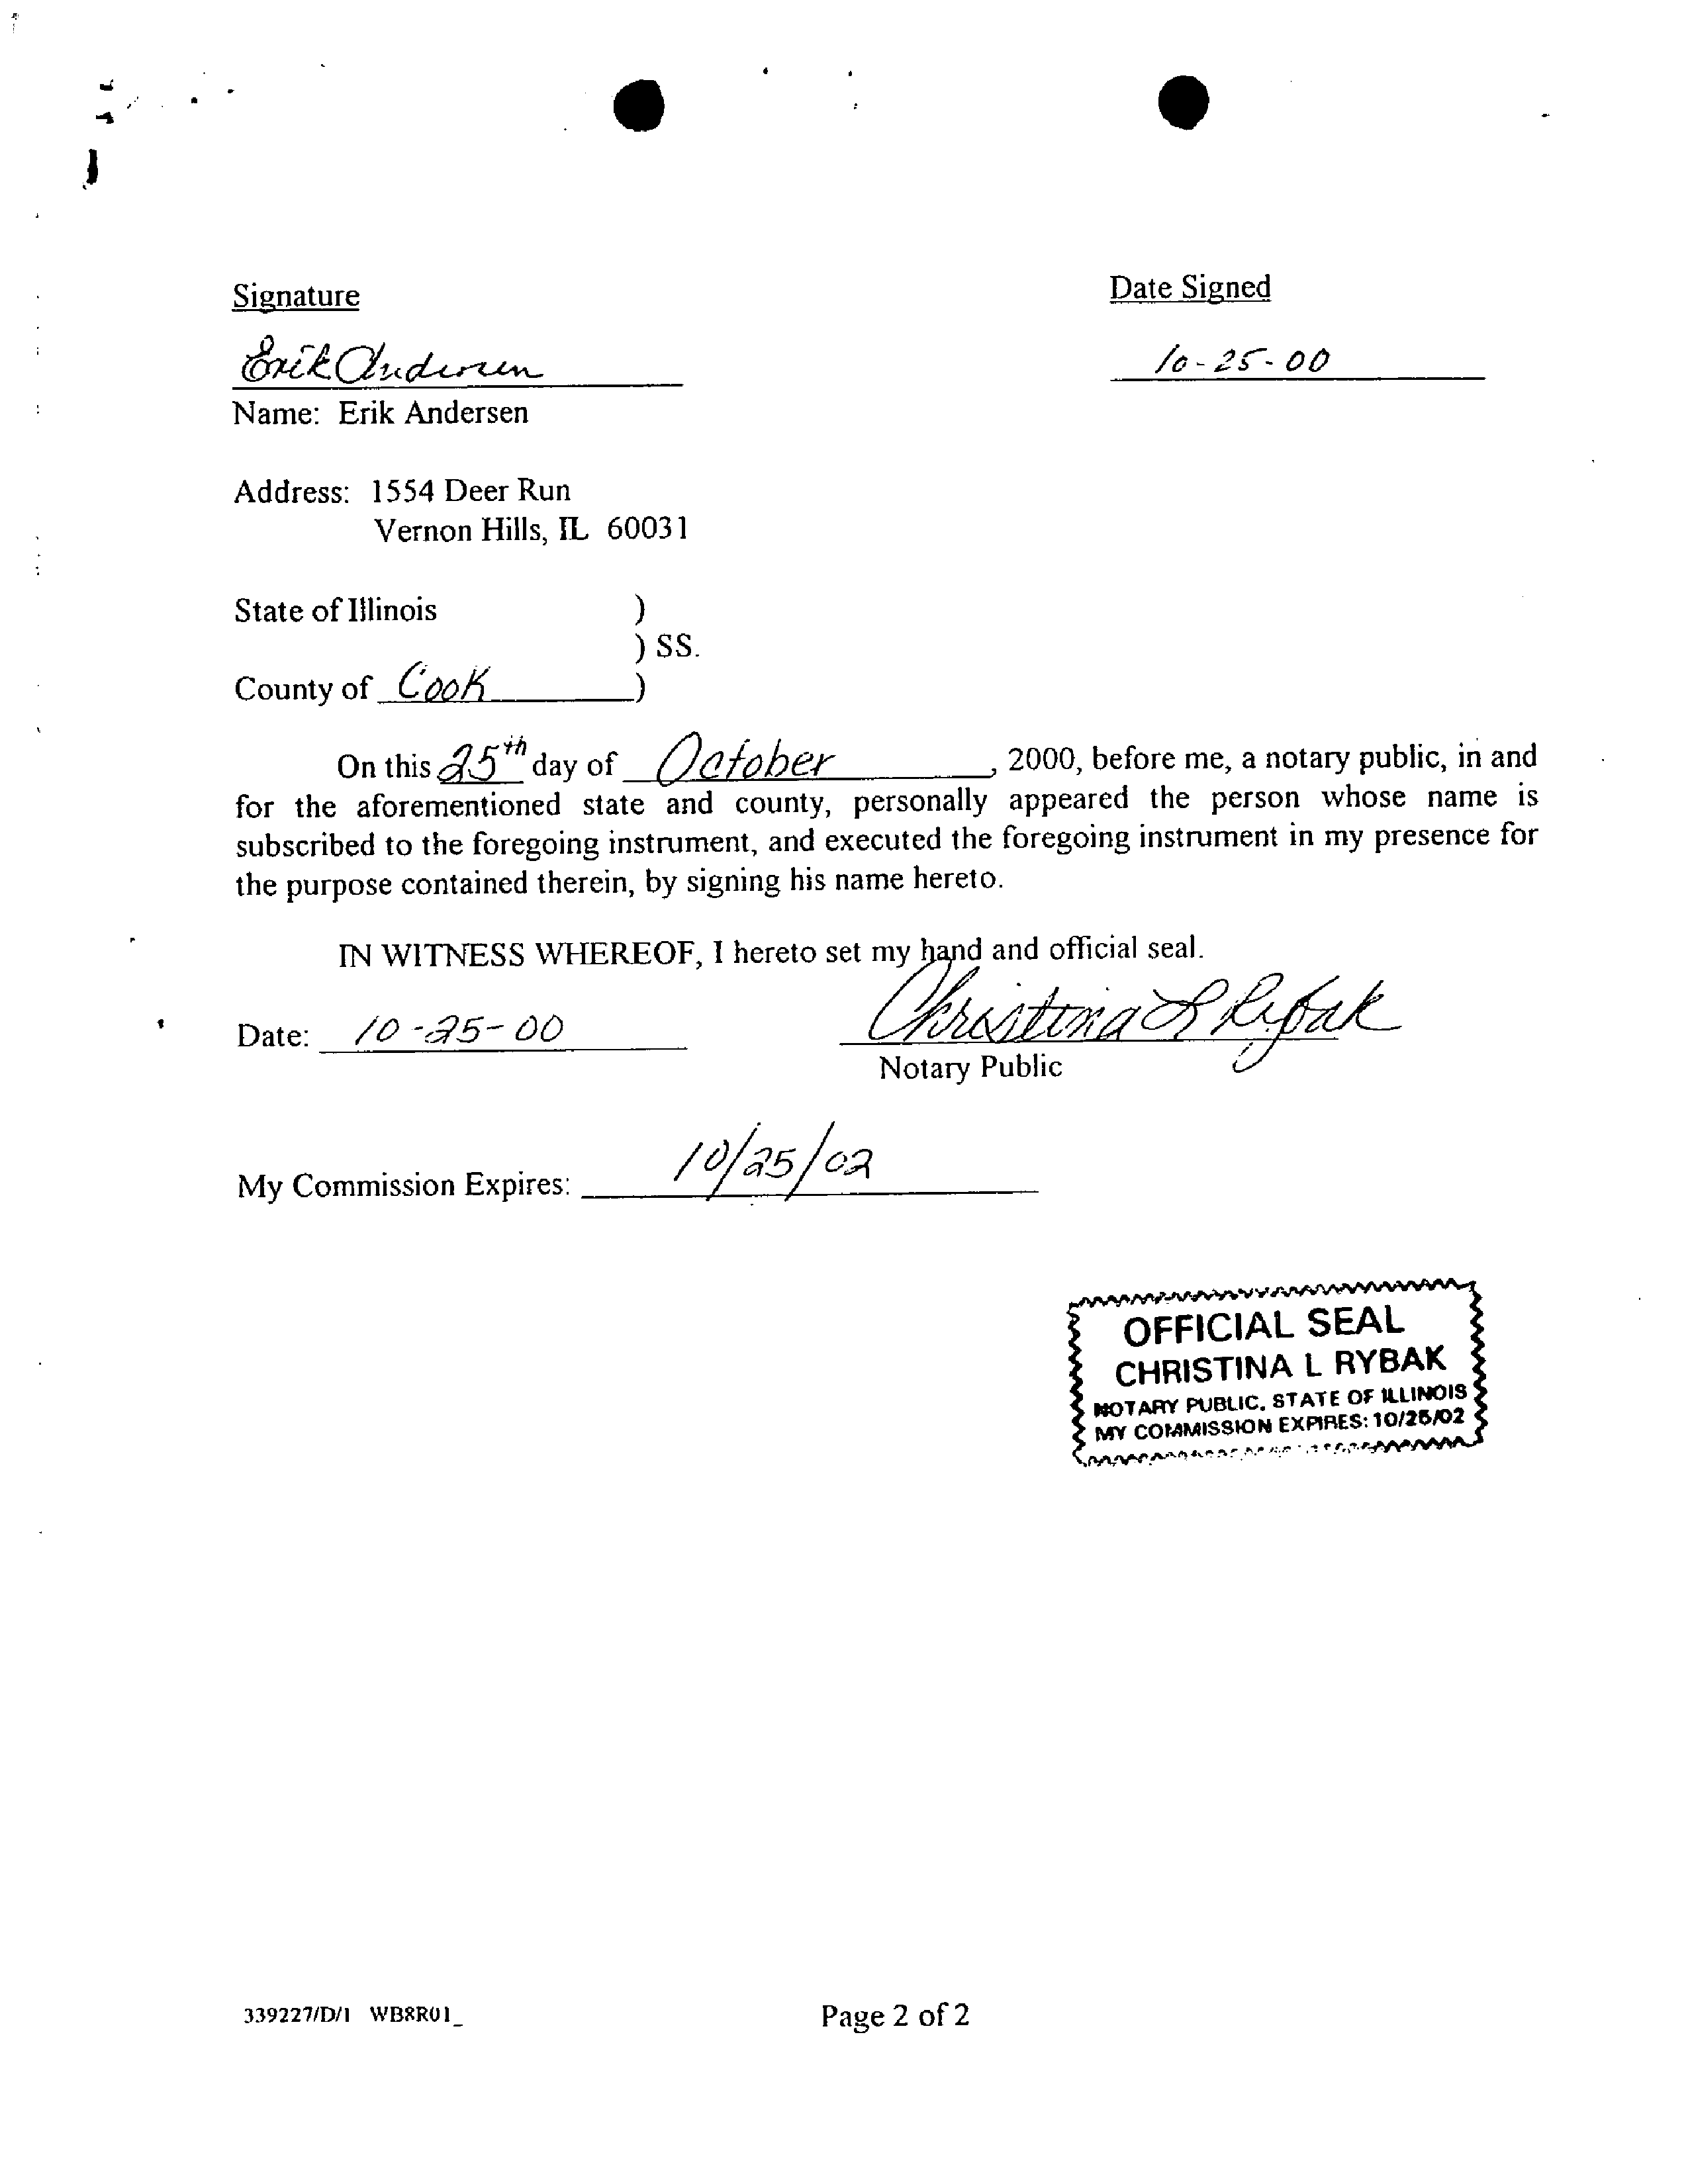 Signature Date Signed
Erik Andersen 10-25-00
Name: Erik Andersen
Address: 1554 Deer Run
Vernon Hills, IL 60031
State of Illinois )
) SS.
County of Cook )
On this 25th day of October, 2000, before me, a notary public, in and
for the aforementioned state and county, personally appeared the person whose name is
subscribed to the foregoing instrument, and executed the foregoing instrument in my presence for
the purpose contained therein, by signing his name hereto.
IN WITNESS WHEREOF, I hereto set my hand and official seal.
Date: 10-25-00 Christina L Rybak
Notary Public
My Commission Expires: 10/25/02
OFFICIAL SEAL
CHRISTINA L RYBAK
NOTARY PUBLIC, STATE OF ILLINOIS
MY COMMISSION EXPIRES: 10/25/02
339227/D/1 WB8R01_ Page 2 of 2